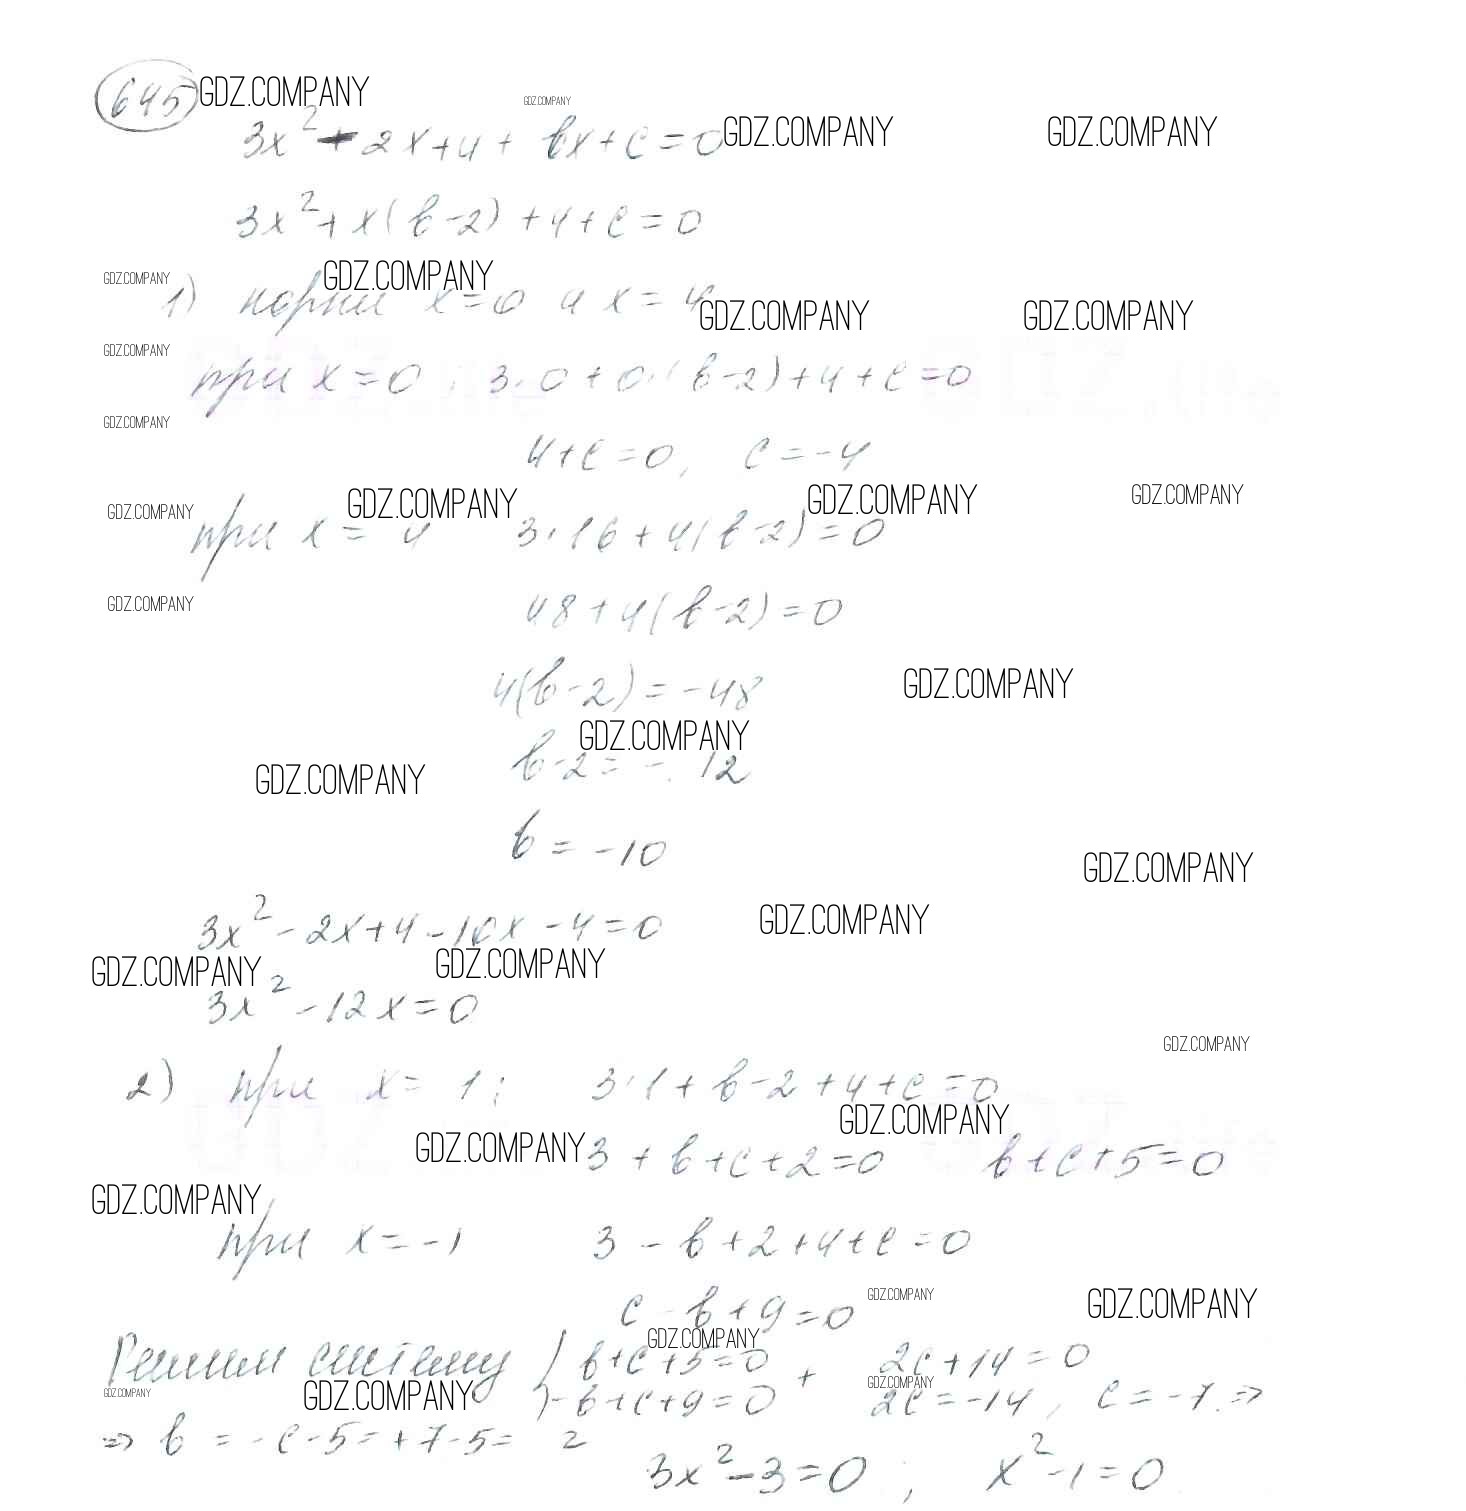 645 GDZ.COMPANY
GDZ.COMPANY
3x² - 2x + 4 + bx + c = 0 GDZ.COMPANY GDZ.COMPANY
3x² + x(b - 2) + 4 + c = 0
GDZ.COMPANY GDZ.COMPANY
1) корни x = 0 и x = 4
GDZ.COMPANY GDZ.COMPANY
GDZ.COMPANY
при x = 0 ; 3·0 + 0·(b - 2) + 4 + c = 0
GDZ.COMPANY
4 + c = 0, c = -4
GDZ.COMPANY GDZ.COMPANY GDZ.COMPANY GDZ.COMPANY
при x = 4 3·16 + 4(b - 2) = 0
GDZ.COMPANY 48 + 4(b - 2) = 0
4(b - 2) = -48 GDZ.COMPANY
GDZ.COMPANY
b - 2 = -12
GDZ.COMPANY
b = -10
GDZ.COMPANY
3x² - 2x + 4 - 10x - 4 = 0 GDZ.COMPANY
GDZ.COMPANY GDZ.COMPANY
3x² - 12x = 0
GDZ.COMPANY
2) при x = 1 ; 3·1 + b - 2 + 4 + c = 0
GDZ.COMPANY
GDZ.COMPANY 3 + b + c + 2 = 0 b + c + 5 = 0
GDZ.COMPANY
при x = -1 3 - b + 2 + 4 + c = 0
c - b + 9 = 0 GDZ.COMPANY GDZ.COMPANY
GDZ.COMPANY
Решим систему { b + c + 5 = 0 + 2c + 14 = 0
GDZ.COMPANY GDZ.COMPANY GDZ.COMPANY
-b + c + 9 = 0 2c = -14, c = -7. ⇒
⇒ b = -c - 5 = +7 - 5 = 2
3x² - 3 = 0 ; x² - 1 = 0